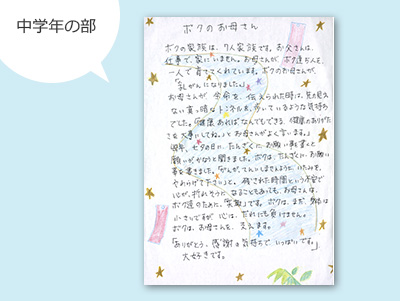 中学年の部
ボクのお母さん
ボクの家族は、7人家族です。お父さんは、
仕事で、家にいません。お母さんが、ボク達5人を、
一人で育ててくれています。ボクのお母さんが、
「乳がんになりました。」
お母さんが、余命を、伝えられた時は、先の見え
ない真っ暗なトンネルを、歩いているような気持ち
でした。「健康あればなんでもできる、健康のありがた
さを大事にしてね。」とお母さんがよく言います。
七夕の日に、たんざくに、お願い事を書くと
願いが、かなうと聞きました。ボクは、たんざくに、お願い
事を書きました。「がんてんいしませんように、いたみを、
やわらげて下さい」と。残された時間という不安で
心が、折れそうに、なることもあっても、お母さんは、
ボク達のために、「笑顔」です。ボクは、まだ、
小さいですが、心は、だれにも負けません。
ボクは、お母さんを、支えます。
「ありがとう、感謝の気持ちで、いっぱいです。」
大好きです。